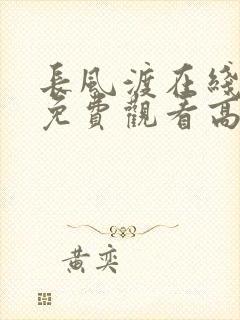 長風渡在綫
免費觀看高
黃奕